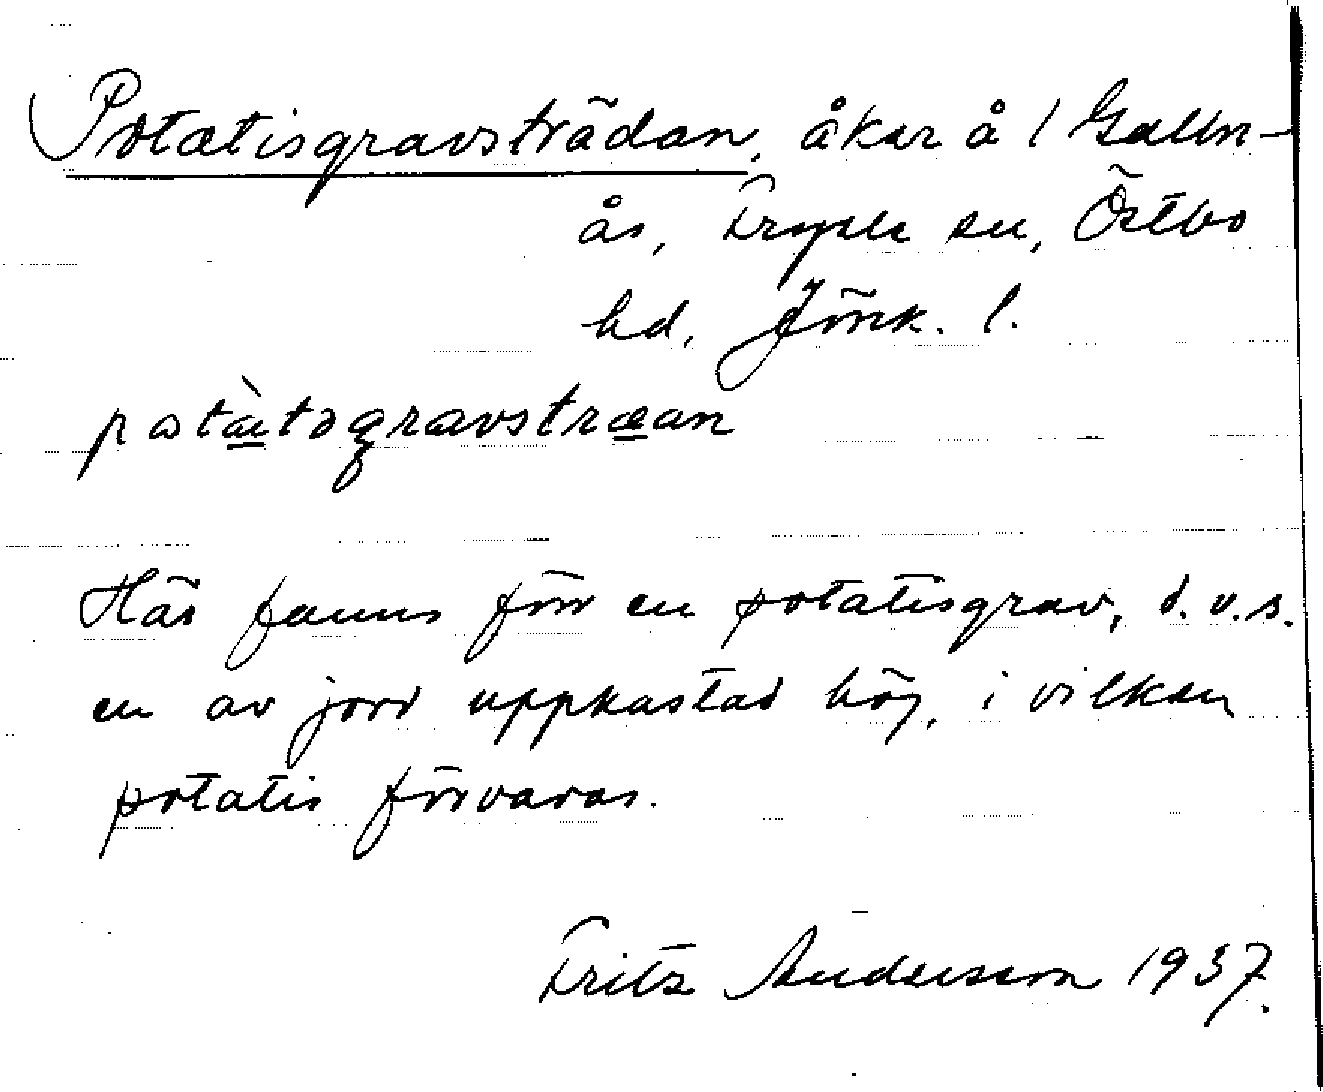 Potatisgravsträdan, åker å 1 Galtn-
ås, Fryele sn, Östbo
hd, Jönk. l.
potàtogravstræan
Här fanns förr en potatisgrav, d.v.s.
en av jord uppkastad hög, i vilken
potatis förvaras.
Fritz Andersson 1937.